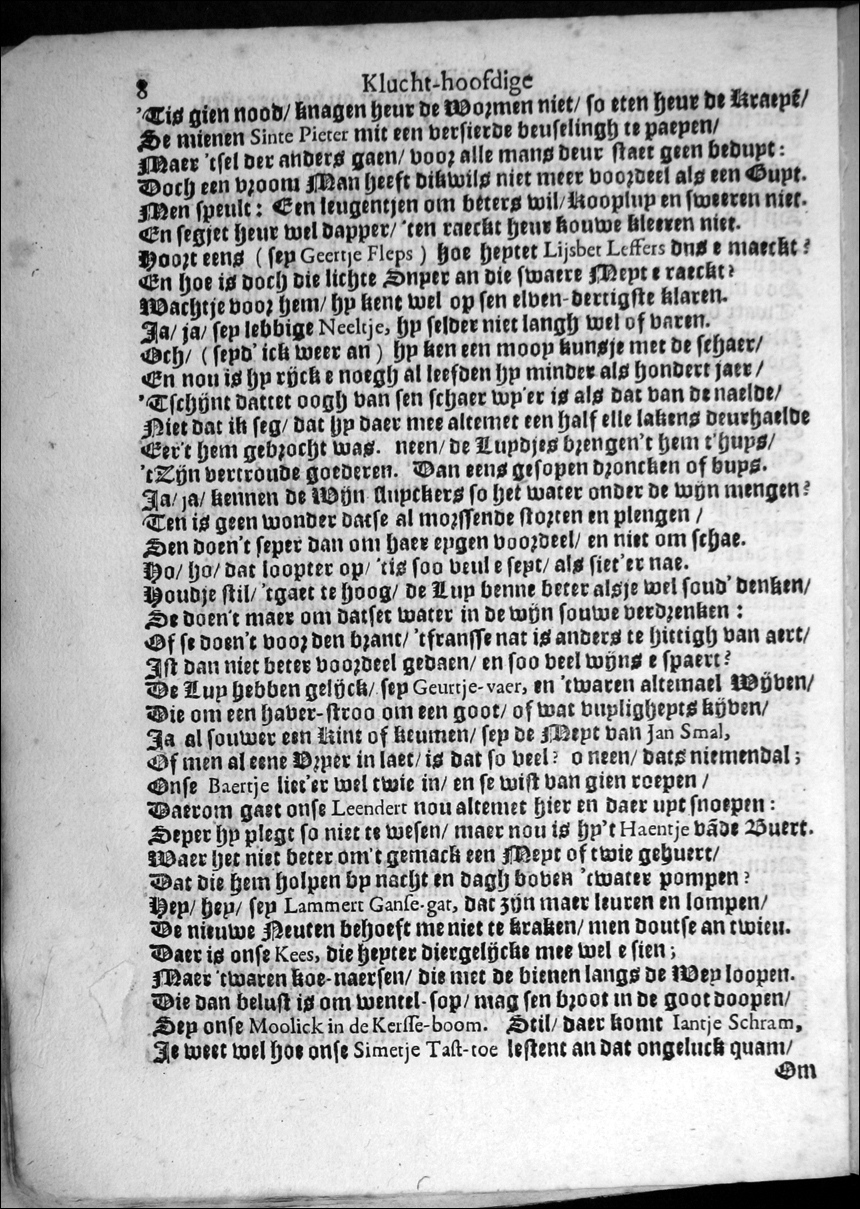 8 Klucht-hoofdige
'Tis gien nood/ knagen heur de Wormen niet/ so eten heur de Kraeyē/
Se mienen Sinte Pieter mit een versierde beuselingh te paeyen/
Maer 'tsel der anders gaen/ voor alle mans deur staet geen beduyt:
Doch een vroom Man heeft dikwils niet meer voordeel als een Guyt.
Men speult: Een leugentjen om beters wil/ Koopluy en sweeren niet.
En segjet heur wel dapper/ 'ten raeckt heur kouwe kleeren niet.
Hoort eens (sey Geertje Fleps) hoe heytet Lijsbet Leffers dus e maeckt?
En hoe is doch die lichte Snyer an die swaere Meyt e raeckt?
Wachtje voor hem/ hy kent wel op sen elven-dertigste klaren.
Ja/ ja/ sey lebbige Neeltje, hy selder niet langh wel of varen.
Och/ (seyd' ick weer an) hy ken een mooy kunsje met de schaer/
En nou is hy rijck e noegh al leefden hy minder als hondert jaer/
'Tschijnt dattet oogh van sen schaer wy'er is als dat van de naelde/
Niet dat ik seg/ dat hy daer mee altemet een half elle lakens deurhaelde
Eer't hem gebrocht was. neen/ de Luydjes brengen't hem t'huys/
'tZijn vertroude goederen. Dan eens gesopen droncken of buys.
Ja/ ja/ kennen de Wijn sluyckers so het water onder de wijn mengen?
Ten is geen wonder datse al morssende storten en plengen/
Sen doen't seper dan om haer eygen voordeel/ en niet om schae.
Ho/ ho/ dat loopter op/ 'tis soo veul e seyt/ als siet'er nae.
Houdje stil/ 'tgaet te hoog/ de Luy benne beter alsje wel soud' denken/
Se doen't maer om datset water in de wijn souwe verdrenken:
Of se doen't voor den brant/ 'tfransse nat is anders te hittigh van aert/
Ist dan niet beter voordeel gedaen/ en soo veel wijns e spaert?
De Luy hebben gelijck/ sey Geurtje-vaer, en 'twaren altemael Wijven/
Die om een haver-stroo om een goot/ of wat vuyligheyts kijven/
Ja al souwer een Kint of keumen/ sey de Meyt van Jan Smal,
Of men al eene Vryer in laet/ is dat so veel? o neen/ dats niemendal;
Onse Baertje liet'er wel twie in/ en se wist van gien roepen/
Daerom gaet onse Leendert nou altemet hier en daer uyt snoepen:
Seper hy plegt so niet te wesen/ maer nou is hy't Haentje vāde Buert.
Waer het niet beter om't gemack een Meyt of twie gehuert/
Dat die hem holpen by nacht en dagh boven 'twater pompen?
Hey/ hey/ sey Lammert Ganse-gat, dat zijn maer leuren en lompen/
De nieuwe Neuten behoeft me niet te kraken/ men doutse an twieu.
Daer is onse Kees, die heyter diergelijcke mee wel e sien;
Maer 'twaren koe-naersen/ die met de bienen langs de Wey loopen.
Die dan belust is om wentel-sop/ mag sen broot in de goot doopen/
Sey onse Moolick in de Kersse-boom. Stil/ daer komt Iantje Schram,
Je weet wel hoe onse Simetje Tast-toe lestent an dat ongeluck quam/
Om